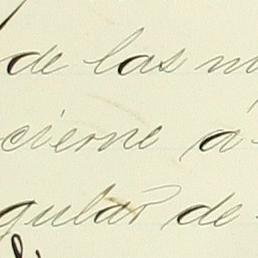 de las m
cierne á
gular de